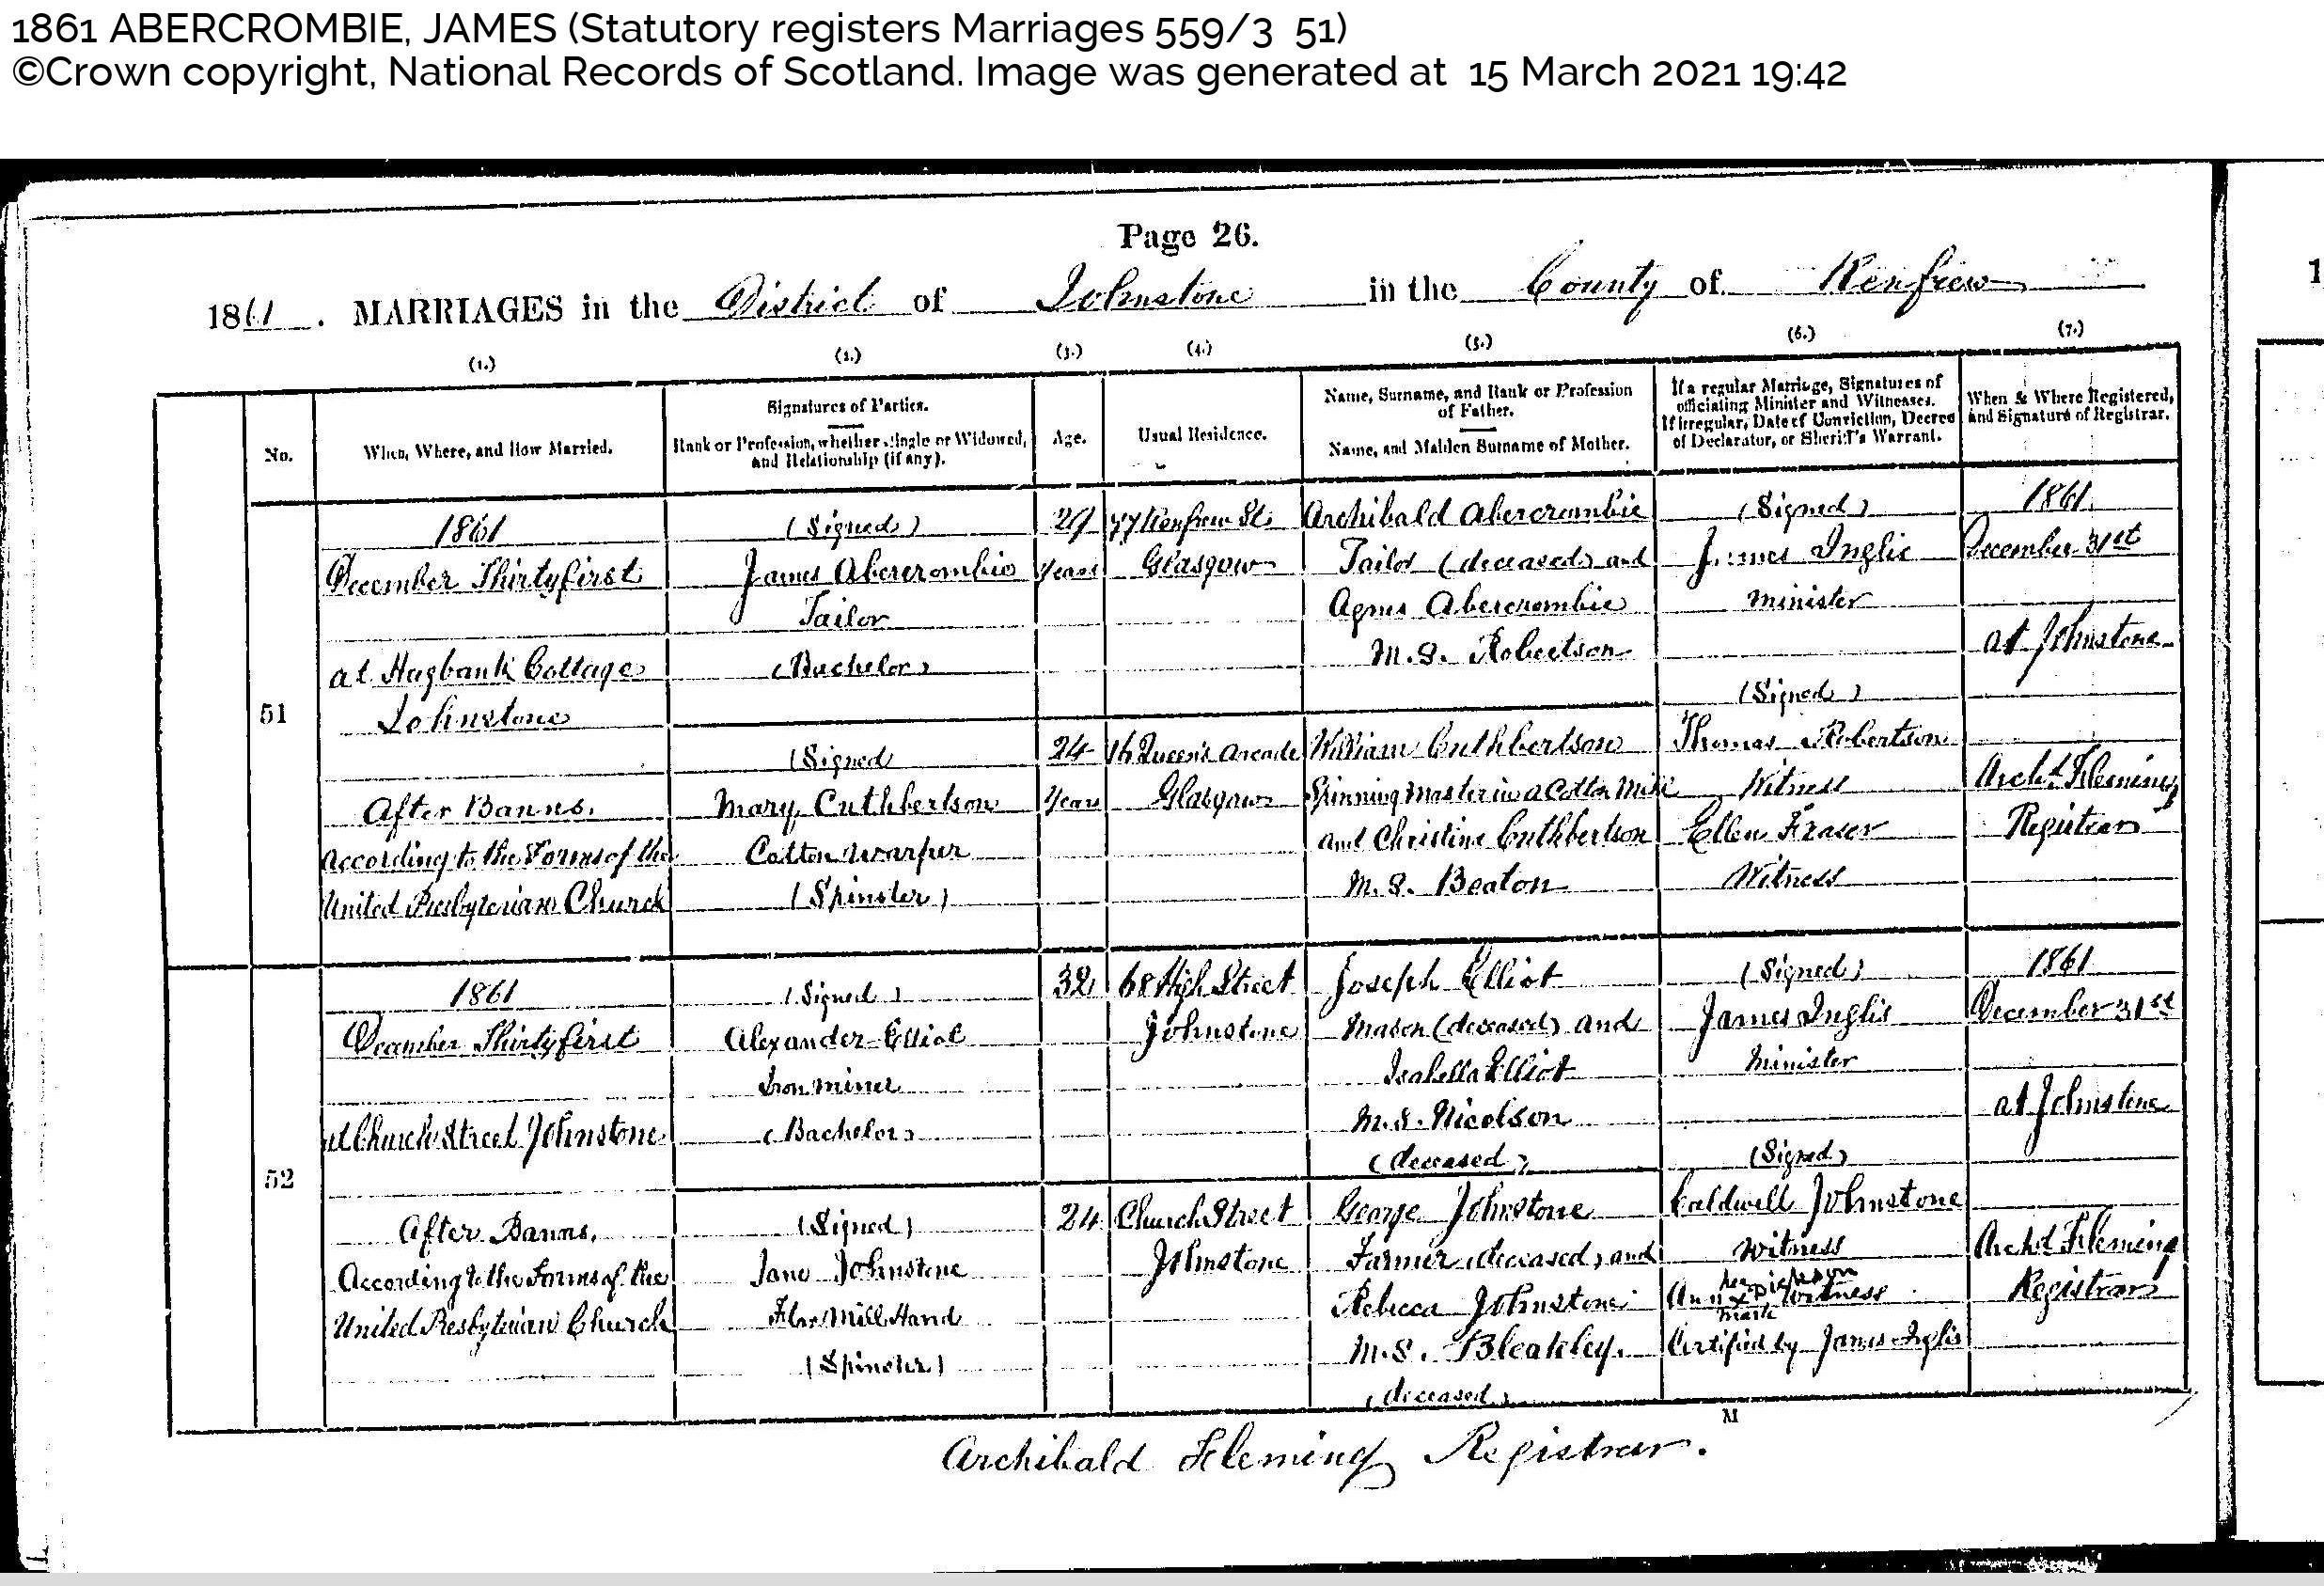 1861 ABERCROMBIE, JAMES (Statutory registers Marriages 559/3 51)
©Crown copyright, National Records of Scotland. Image was generated at 15 March 2021 19:42
Page 26.
1861. MARRIAGES in the District of Johnstone in the County of Renfrew
(1.) (2.) (3.) (4.) (5.) (6.) (7.)
No.
When, Where, and How Married.
Signatures of Parties.
Rank or Profession, whether Single or Widowed,
and Relationship (if any).
Age.
Usual Residence.
Name, Surname, and Rank or Profession
of Father.
Name, and Maiden Surname of Mother.
If a regular Marriage, Signatures of
officiating Minister and Witnesses.
If irregular, Date of Conviction, Decree
of Declarator, or Sheriff's Warrant.
When & Where Registered,
and Signature of Registrar.
51
1861
December Thirtyfirst
at Hagbank Cottage
Johnstone
After Banns.
According to the Forms of the
United Presbyterian Church
(Signed)
James Abercrombie
Tailor
(Bachelor)
(Signed
Mary Cuthbertson
Cotton Warper
(Spinster)
29
years
24
Years
77 Renfrew St.
Glasgow
16 Queen's Arcade
Glasgow
Archibald Abercrombie
Tailor (deceased) and
Agnes Abercrombie
M.S. Robertson
William Cuthbertson
Spinning Master in a Cotton Mill
and Christine Cuthbertson
M.S. Beaton
(Signed)
James Inglis
Minister
(Signed)
Thomas Robertson
Witness
Ellen Fraser
Witness
1861.
December 31st
at Johnstone
Archd. Fleming
Registrar
52
1861
December Thirtyfirst
at Church Street Johnstone
After Banns.
According to the Forms of the
United Presbyterian Church
(Signed)
Alexander Elliot
Iron miner
(Bachelor)
(Signed)
Jane Johnstone
Flax Mill Hand
(Spinster)
32
24
68 High Street
Johnstone
Church Street
Johnstone
Joseph Elliot
Mason (deceased) and
Isabella Elliot
M.S. Nicolson
(deceased)
George Johnstone
Farmer (deceased) and
Rebecca Johnstone
M.S. Bleakley.
(deceased)
(Signed)
James Inglis
Minister
(Signed)
Caldwell Johnstone
Witness
Ann her x mark Witness
Certified by James Inglis
1861
December 31st
at Johnstone
Archd Fleming
Registrar
M
Archibald Fleming Registrar.